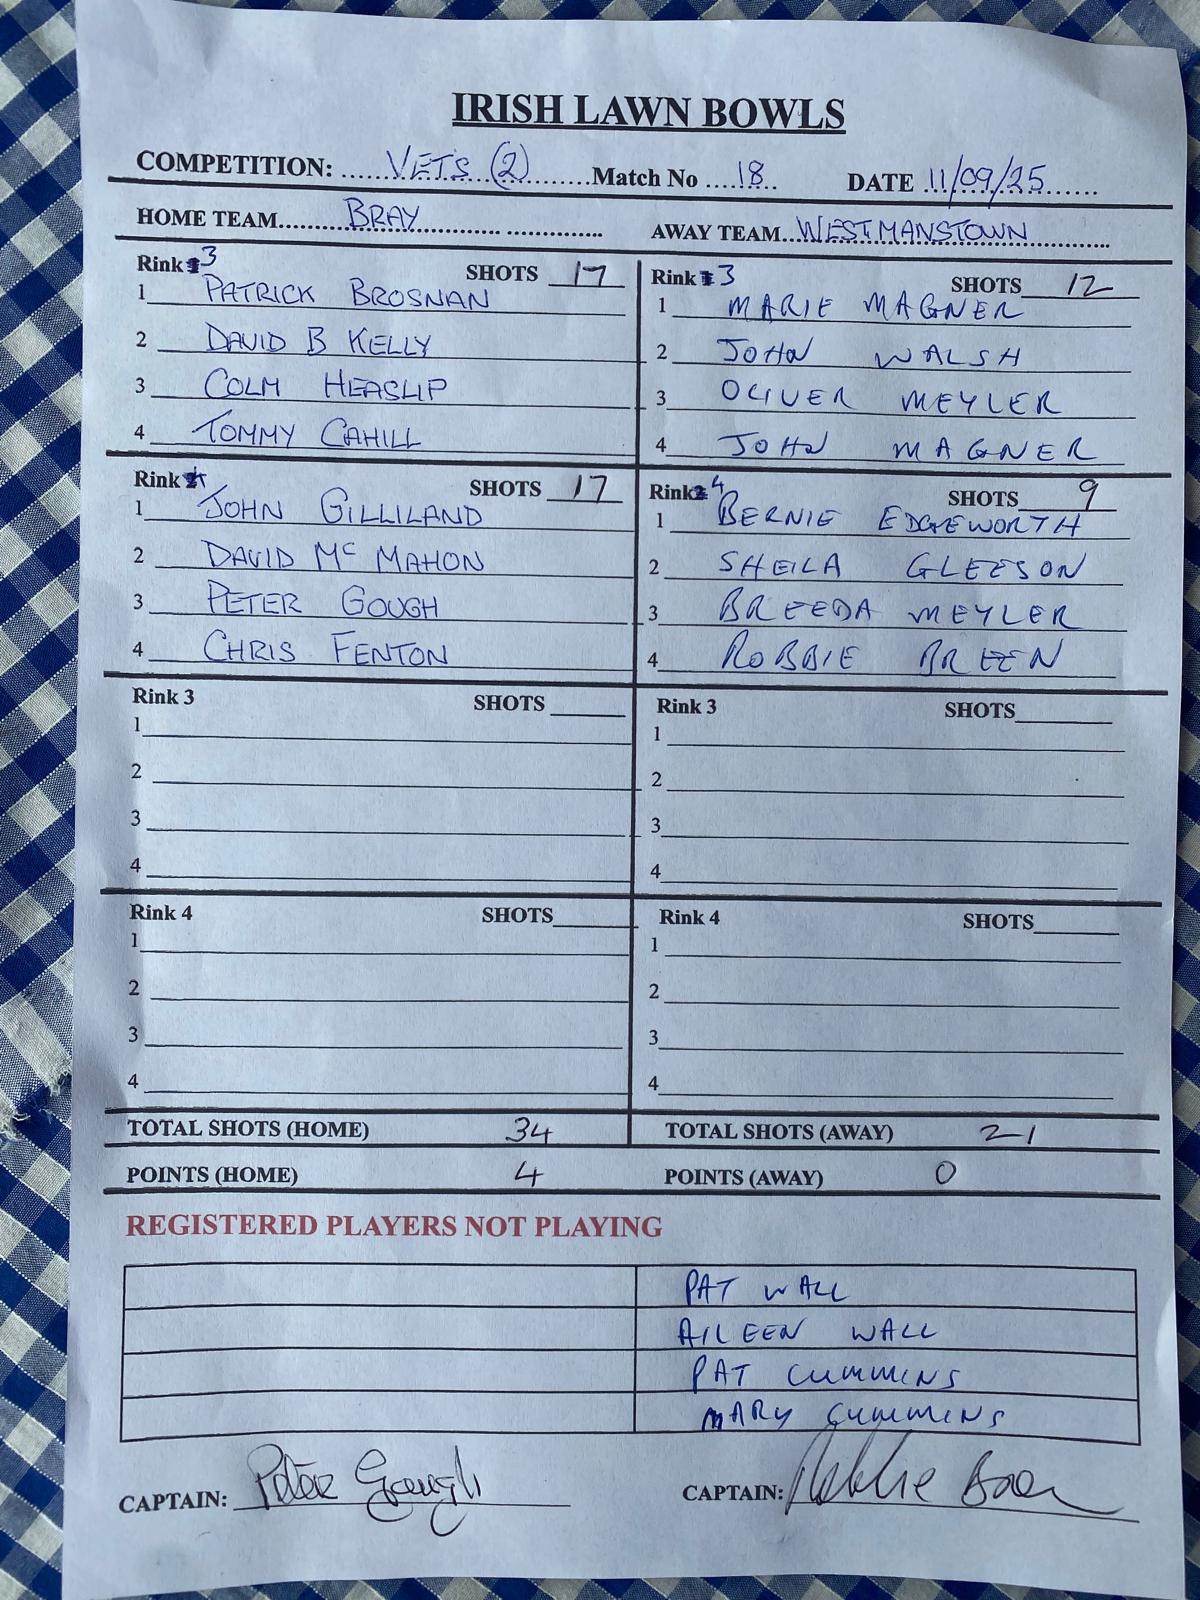 IRISH LAWN BOWLS
COMPETITION: ......VETS (2)..........Match No ....18.. DATE 11/09/25.......
HOME TEAM...BRAY............ AWAY TEAM...WESTMANSTOWN..........
Rink 3 SHOTS 17
1 PATRICK BROSNAN
2 DAVID B KELLY
3 COLM HEASLIP
4 TOMMY CAHILL
Rink 3 SHOTS 12
1 MARIE MAGNER
2 JOHN WALSH
3 OLIVER MEYLER
4 JOHN MAGNER
Rink 4 SHOTS 17
1 JOHN GILLILAND
2 DAVID Mc MAHON
3 PETER GOUGH
4 CHRIS FENTON
Rink 4 SHOTS 9
1 BERNIE EDGEWORTH
2 SHEILA GLEESON
3 BREEDA MEYLER
4 ROBBIE BREEN
Rink 3 SHOTS
1
2
3
4
Rink 3 SHOTS
1
2
3
4
Rink 4 SHOTS
1
2
3
4
Rink 4 SHOTS
1
2
3
4
TOTAL SHOTS (HOME) 34 TOTAL SHOTS (AWAY) 21
POINTS (HOME) 4 POINTS (AWAY) 0
REGISTERED PLAYERS NOT PLAYING
PAT WALL
AILEEN WALL
PAT CUMMINS
MARY CUMMINS
CAPTAIN: Peter Gough CAPTAIN: Robbie Breen